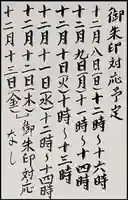 御朱印対応予定
十二月八日（日）十二時～十六時
十二月九日（月）十一時～十四時
十二月十日（火）十時～十三時
十二月十一日（水）十二時～十四時
十二月十二日（木）御朱印対応
十二月十三日（金）なし